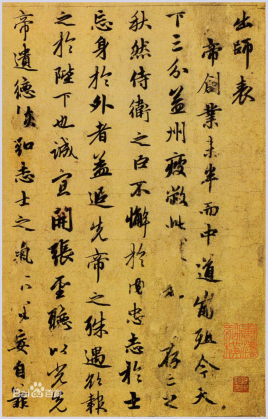 出師表
帝創業未半而中道崩殂今天
下三分益州疲敝此存之
秋然侍衛之臣不懈於内忠志於士
忘身於外者蓋追先帝之殊遇欲報
之於陛下也誠宜開張聖聽以光先
帝遺德恢弘志士之氣不宜妄自菲
Bai百科